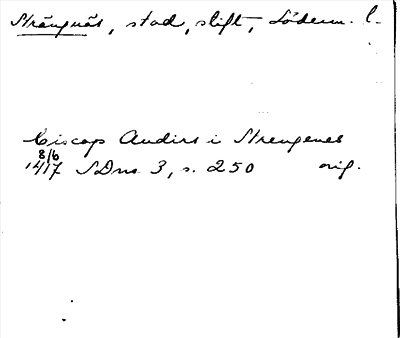 Strängnäs, stad, stift, Söderm. l.
Biscop Andirs i Strengenes
8/6
1417 SDns 3, s. 250 orig.